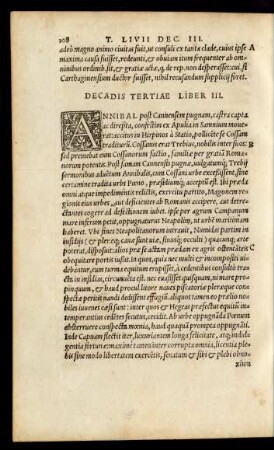 208 T. LIVII DEC. III.
adeò magno animo ciuitas fuit, ut consule ex tanta clade, cuius ipse A
maxima causa fuisset, redeunti, & obuiam itum frequenter ab om=
nibus ordinib. sit, & gratiæ actæ, q̃ de rep. non desperasset: cui si
Carthaginensium ductor fuisset, nihil recusandum supplicij foret.
DECADIS TERTIAE LIBER III.
ANNIBAL post Cannensem pugnam, castra capta
ac direpta, confestim ex Apulia in Samnium moue=
rat: accitus in Hirpinos à Statio, pollicẽte se Cossam
traditurũ. Cossanus erat Trebius, nobilis inter suos: B
sed premebat eum Cossanorum factio, familiæ per gratiã Roma=
norum potentis. Post famam Cannensis pugnæ, uulgatumq; Trebij
sermonibus aduentum Annibalis, cum Cossani urbe excessissent, sine
certamine tradita urbs Pœno, præsidiumq; acceptum est. Ibi præda
omni atque impedimentis relictis, exercitu partito, Magonem re=
gionis eius urbes, aut deficientes ab Romanis accipere, aut de=
trectantes cogere ad defectionem iubet. ipse per agrum Campanum
mare inferum petit, oppugnaturus Neapolim, ut urbẽ maritimam
haberet. Vbi fines Neapolitanorum intrauit, Numidas partim in
insidijs (& pleræq; cauæ sunt uiæ, sinusq; occulti) quacunque aptè
poterat disposuit: alios præ se actam prædam ex agris ostentãteis C
obequitare portis iussit. in quos, quia nec multi & incompositi ui=
debãtur, cum turma equitum erupisset, à cedentibus consultò tracta
in insidias, circumuẽta est. nec euasisset quisquam, ni mare propin=
quum, & haud procul litore naues piscatoriæ pleræque con=
spectæ peritis nandi dedissent effugiũ. aliquot tamen eo prælio nobi=
les iuuenes capti cæsiq́ue: inter quos & Hegeas præfectus equitũ in=
temperantius cedẽtes secutus, cecidit. Ab urbe oppugnãda Pœnum
absterruere conspecta mœnia, haud quaquã prompta oppugnãti.
Inde Capuam flectit iter, luxuriantem longa felicitate, atq; indul=
gentia fortunæ: maximè tamen inter corrupta omnia, licentia ple=
bis sine modo libertatem exercẽtis, senatum & sibi & plebi obno=
xium